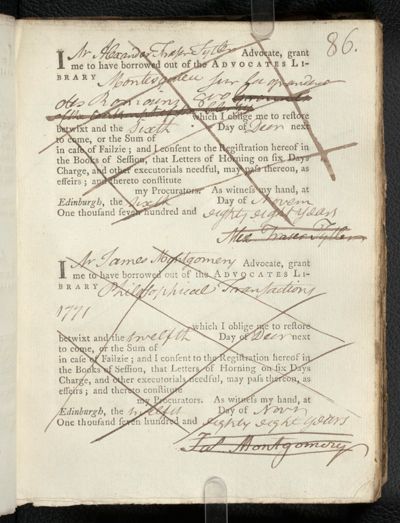 86.
I Mr Alexander Fraser Tytler Advocate, grant
me to have borrowed out of the ADVOCATES LI-
BRARY Montesquieu Sur la grandeur
des Romains
which I oblige me to restore
betwixt and the Sixth Day of Decr next
to come, or the Sum of
in case of Failzie; and I consent to the Registration hereof in
the Books of Session, that Letters of Horning on six Days
Charge, and other executorials needful, may pass thereon, as
effeirs; and thereto constitute
my Procurators. As witness my hand, at
Edinburgh, the sixth Day of Novem
One thousand seven hundred and eighty eight years
Alex Fraser Tytler
I Mr James Montgomery Advocate, grant
me to have borrowed out of the ADVOCATES LI-
BRARY Philosophical Transactions
1771
which I oblige me to restore
betwixt and the twelfth Day of Decr next
to come, or the Sum of
in case of Failzie; and I consent to the Registration hereof in
the Books of Session, that Letters of Horning on six Days
Charge, and other executorials needful, may pass thereon, as
effeirs; and thereto constitute
my Procurators. As witness my hand, at
Edinburgh, the twelfth Day of Novr
One thousand seven hundred and eighty eight years
Jas Montgomery